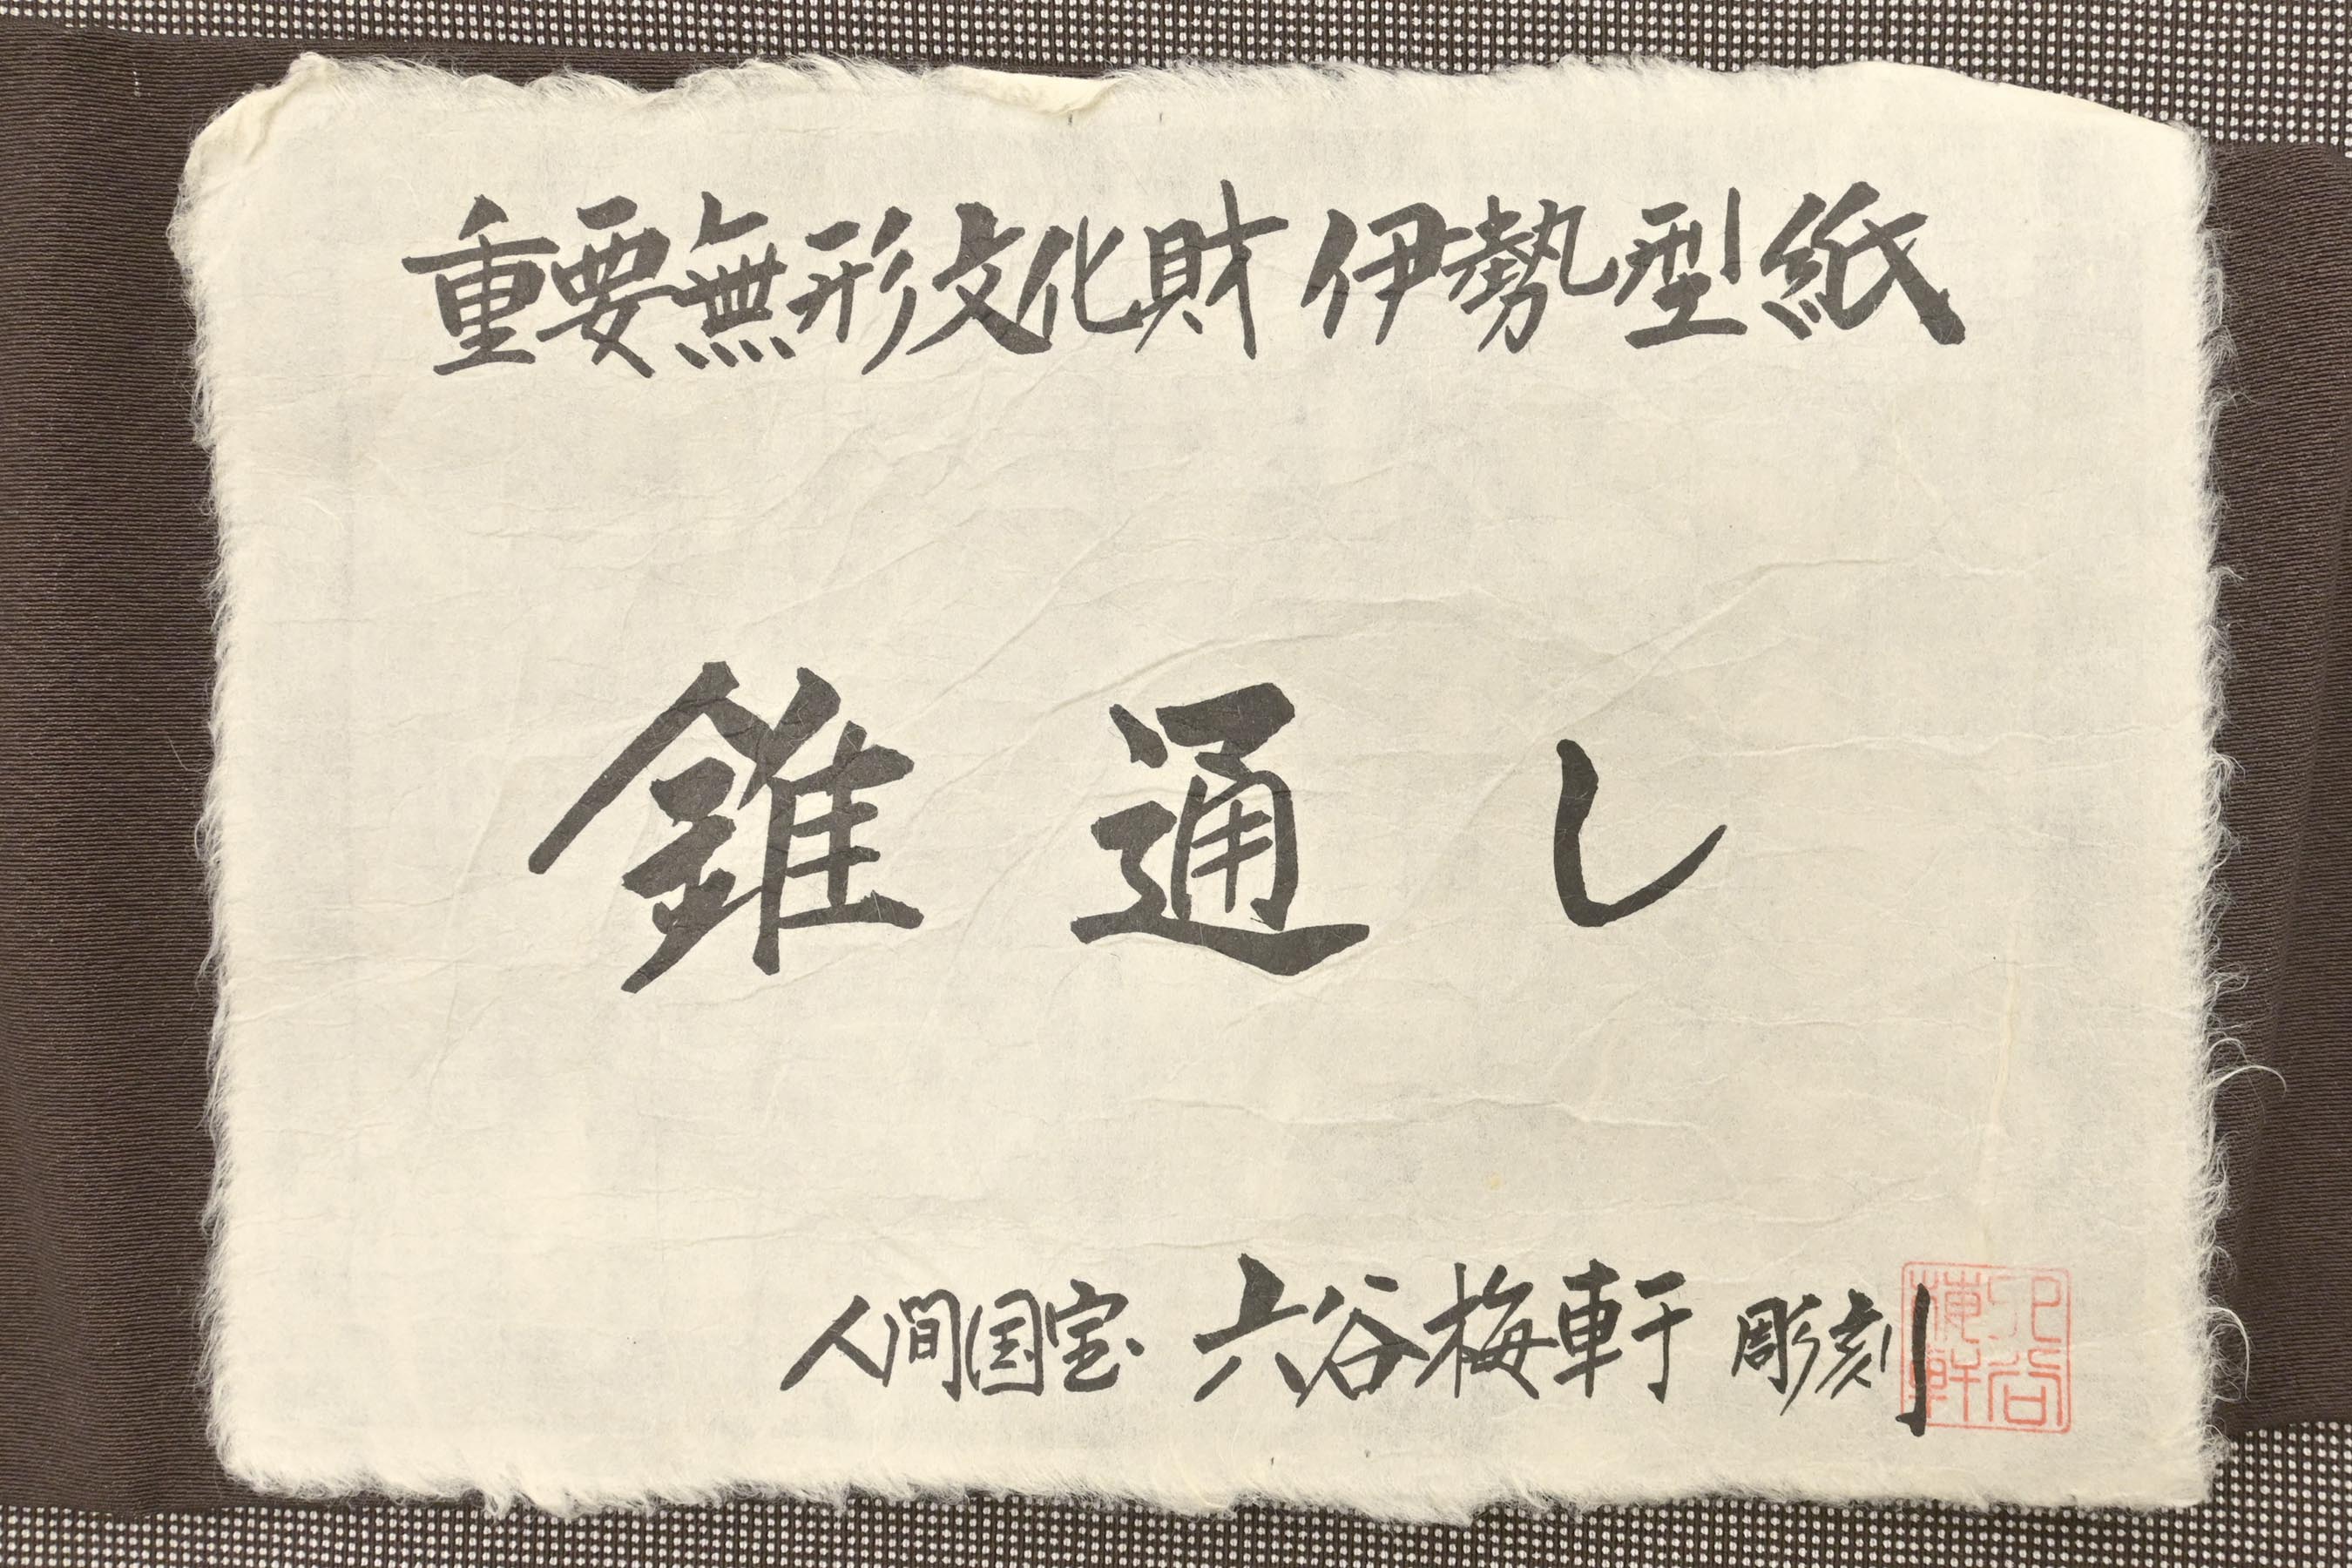 重要無形文化財 伊勢型紙
錐通し
人間国宝 六谷梅軒 彫刻
六谷梅軒